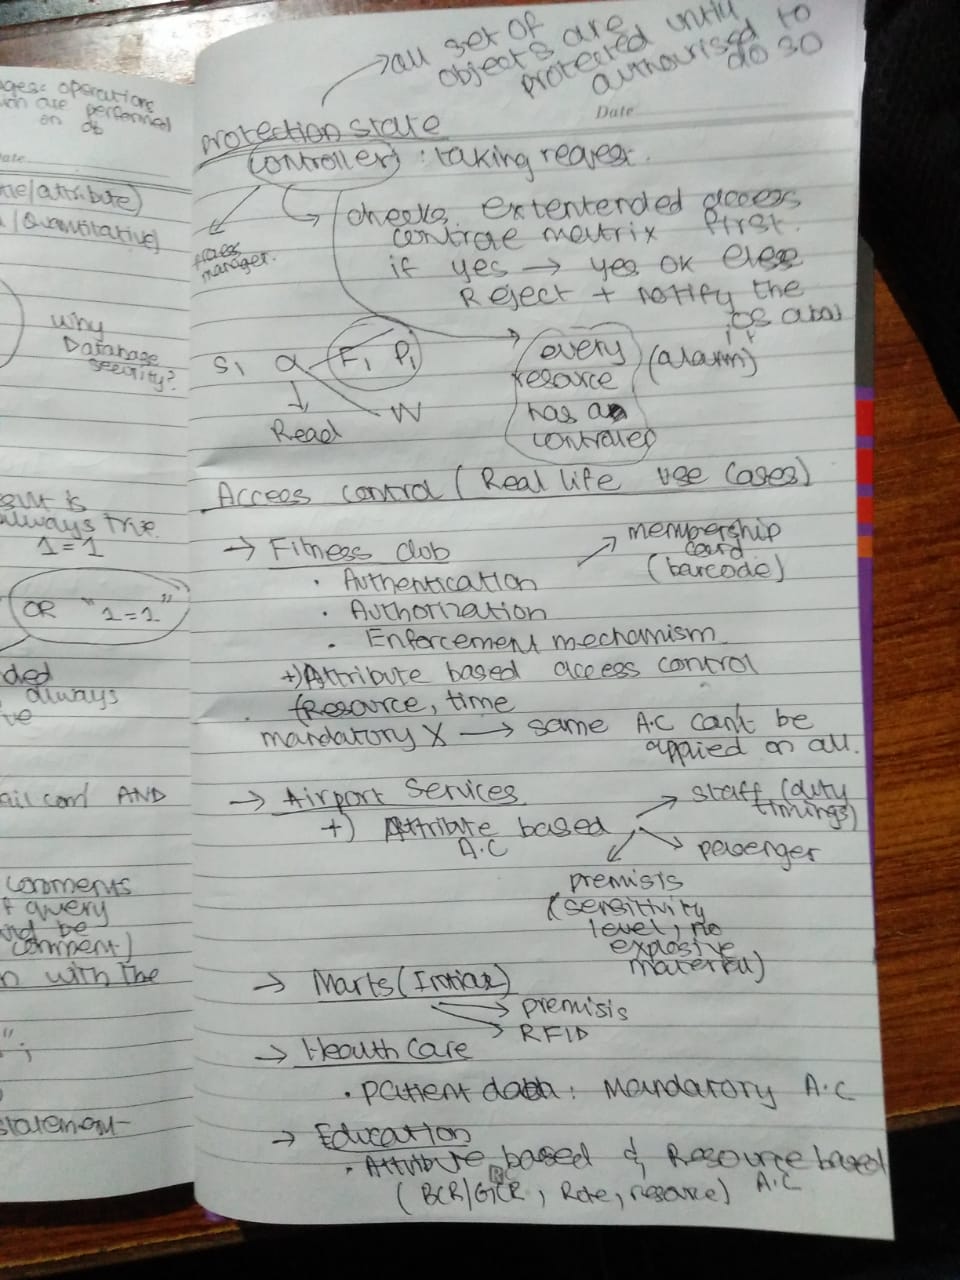 ages: operations
which are performed
on db
Date
ne/attribute)
/Quantitative)
Why
Database
security?
always true.
1=1
OR "1=1"
ded
always
ve
cond AND
comments
f query
be
comment)
n with the
";
statement
→all set of
objects are
protected until
authourised to
do so
Date
protection state
(controller) : taking reques.
access
manager.
checks extentended access
controle matrix first.
if yes → yes ok else
Reject + notify the
os abat
it
(alarm)
S1 α F1 P1
W
Read
every
resource
has a
controller
Access control (Real life use cases)
→ Fitness club
membership
card
(barcode)
· Authentication
· Authorization
· Enforcement mechanism
+)Attribute based access control
(Resource, time
mandatory X → same A.C can't be
applied on all.
→ Airport Services
+) Attribute based
A.C
staff (duty
timings)
pasenger
premisis
(sensitivity
level, no
explosive
material)
→ Marts (Imtiaz)
premisis
RFID
→ Health Care
· Patient data : Mandatory A.C
→ Education
· Attribute based & Resource based
A.C
(BCR/GCR, Role, resource)